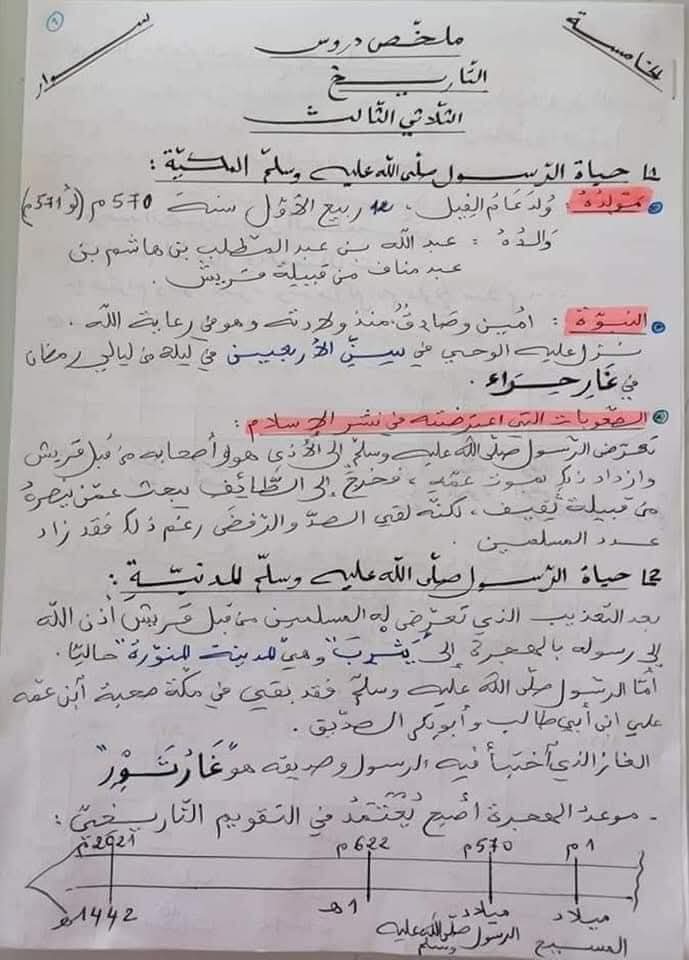 الخامسة
سـوار
ملخّص دروس
التّاريخ
الثّلاثي الثّالث
1) حياة الرّسول صلّى الله عليه وسلّم المكيّة :
مَولِدُهُ : وُلدَ عَامُ الفِيل، 12 ربيع الأوّل سنة 570 م (أو 571م)
وَالدُهُ : عبد الله بن عبد المطّلب بن هاشم بن
عبد مناف من قبيلة قريش.
النبوّة : أمين وصَادِقٌ منذ ولادته وهو في رعاية الله.
نزل عليه الوحي في سِنِّ الأربعين في ليلة من ليالي رمضان
في غَارِ حِرَاء.
الصّعوبات التي اعترضته في نشر الإسلام :
تعرّض الرّسول صلّى الله عليه وسلّم إلى الأذى هو وأصحابه من قبل قريش
وازداد ذلك بموت عمّه، فخرج إلى الطّائف يبحث عمّن ينصره
من قبيلة ثقيف، لكنّه لقي الصدّ والرّفض رغم ذلك فقد زاد
عدد المسلمين.
2) حياة الرّسول صلّى الله عليه وسلّم المدنيّة :
بعد التعذيب الذي تعرّض له المسلمين من قبل قريش أذن الله
إلى رسوله بالهجرة إلى "يثرب" وهي "المدينة المنوّرة" حاليّا.
أمّا الرّسول صلّى الله عليه وسلّم فقد بقي في مكّة صحبة ابن عمّه
علي ابن أبي طالب وأبو بكر الصدّيق.
الغار الذي اختبأ فيه الرسول وصديقه هو "غَارُ ثَوْرٍ"
- موعد الهجرة أصبح يُعْتَمَدُ في التقويم التّاريخيّ :
1م 570م 622م 2021م
ميلاد المسيح
ميلاد الرّسول صلّى الله عليه وسلّم
1هـ 1442هـ